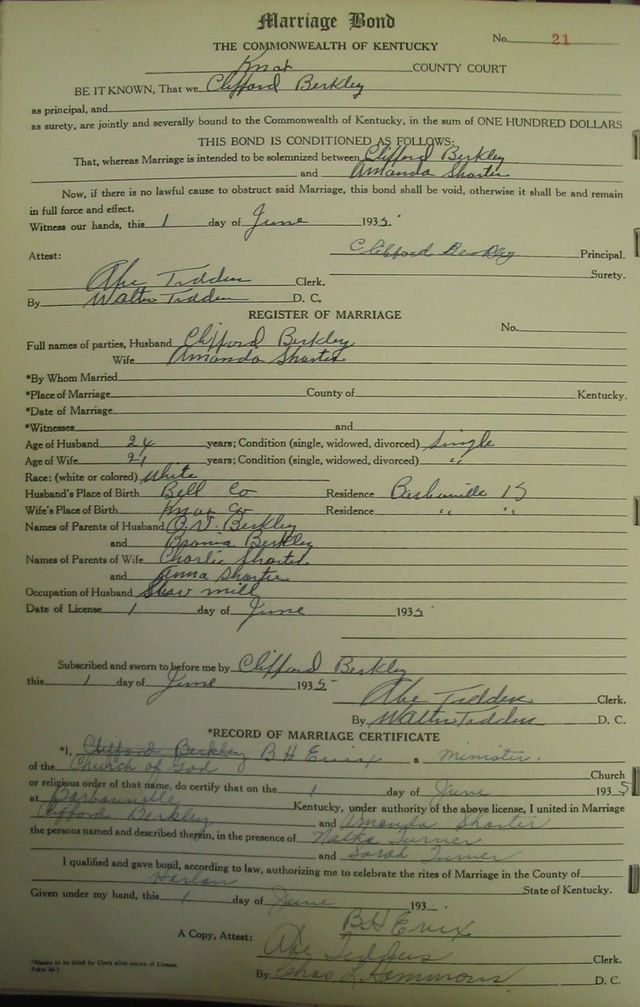 Marriage Bond
No. 21
THE COMMONWEALTH OF KENTUCKY
Knox COUNTY COURT
BE IT KNOWN, That we Clifford Berkley
as principal, and
as surety, are jointly and severally bound to the Commonwealth of Kentucky, in the sum of ONE HUNDRED DOLLARS
THIS BOND IS CONDITIONED AS FOLLOWS:
That, whereas Marriage is intended to be solemnized between Clifford Berkley
and Amanda Shorter
Now, if there is no lawful cause to obstruct said Marriage, this bond shall be void, otherwise it shall be and remain
in full force and effect.
Witness our hands, this 1 day of June 1935
Clifford Berkley Principal.
Attest:
Surety.
Abe Tedders Clerk.
By Walter Tedders D. C.
REGISTER OF MARRIAGE
No.
Full names of parties, Husband Clifford Berkley
Wife Amanda Shorter
*By Whom Married
*Place of Marriage County of Kentucky.
*Date of Marriage
*Witnesses and
Age of Husband 24 years; Condition (single, widowed, divorced) Single
Age of Wife 21 years; Condition (single, widowed, divorced) "
Race: (white or colored) White
Husband's Place of Birth Bell Co Residence Barbourville
Wife's Place of Birth Knox Co Residence " "
Names of Parents of Husband Berkley
and Berkley
Names of Parents of Wife Charlie Shorter
and Anna Shorter
Occupation of Husband mill
Date of License 1 day of June 1935
Subscribed and sworn to before me by Clifford Berkley
this 1 day of June 1935
Abe Tedders Clerk.
By Walter Tedders D. C.
*RECORD OF MARRIAGE CERTIFICATE
*I, Clifford Berkley B H Enix a minister.
of the Church of God Church
or religious order of that name, do certify that on the 1 day of June 1935
at Barbourville Kentucky, under authority of the above license, I united in Marriage
Clifford Berkley and Amanda Shorter
the persons named and described therein, in the presence of Turner
and Sarah Turner
I qualified and gave bond, according to law, authorizing me to celebrate the rites of Marriage in the County of
Harlan State of Kentucky.
Given under my hand, this 1 day of June 193
B H Enix
A Copy, Attest: Abe Tedders Clerk.
By Chas L Hammons D. C.
*Blanks to be filled by Clerk after return of License